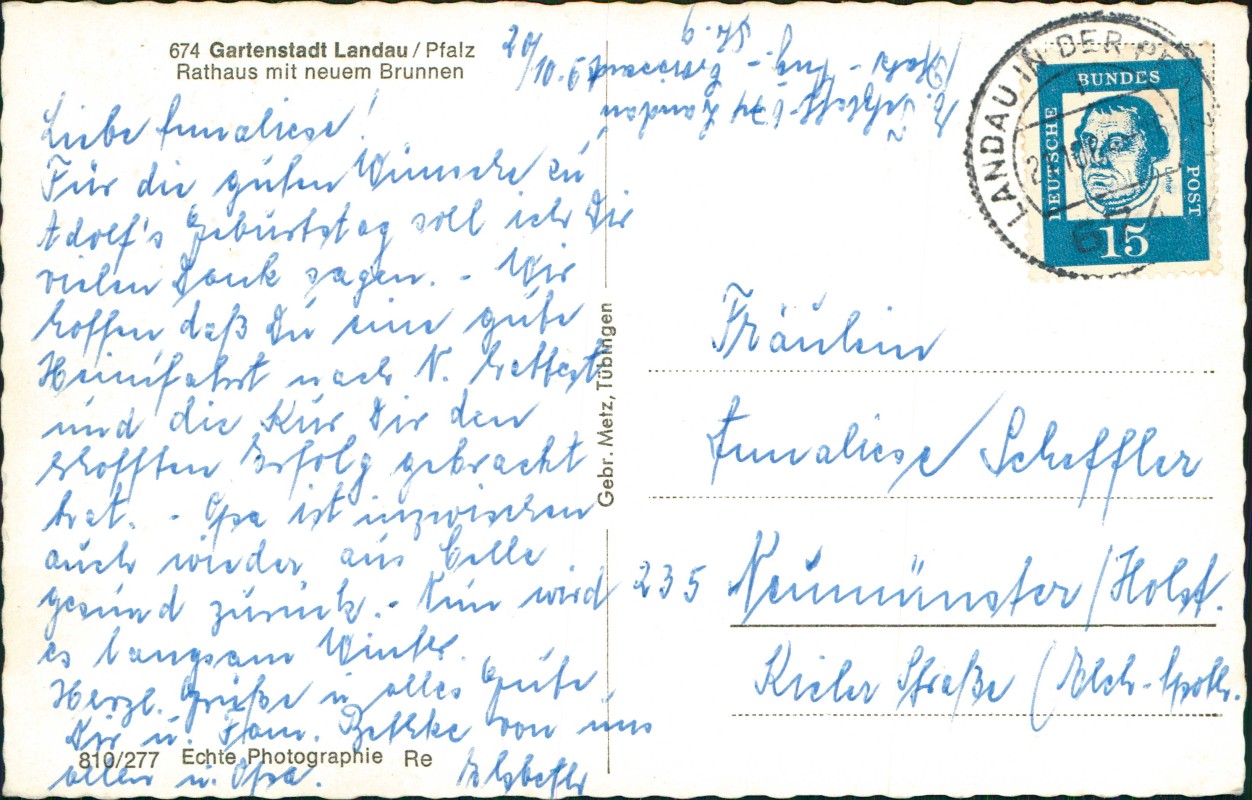 674 Gartenstadt Landau / Pfalz
Rathaus mit neuem Brunnen
20/10.67
Liebe Annaliese!
Für die guten Wünsche zu
Adolf's Geburtstag soll ich Dir
vielen Dank sagen. - Wir
hoffen daß Du eine gute
Heimfahrt nach N. hattest
und die Kur Dir den
erhofften Erfolg gebracht
hat. - Opa ist inzwischen
auch wieder aus Celle
gesund zurück. - Nun wird
es langsam Winter.
Herzl. Grüße u. alles Gute,
Dir u. Fam. Bethke von uns
allen u. Opa. Elsbeth
810/277 Echte Photographie Re
Gebr. Metz, Tübingen
674 Landau
/Pfalz
Str. 9
LANDAU IN DER PFALZ
DEUTSCHE
BUNDES
POST
Luther
15
Fräulein
Annaliese Scheffler
235 Neumünster/Holst.
Kieler Straße (Elch-Apoth.